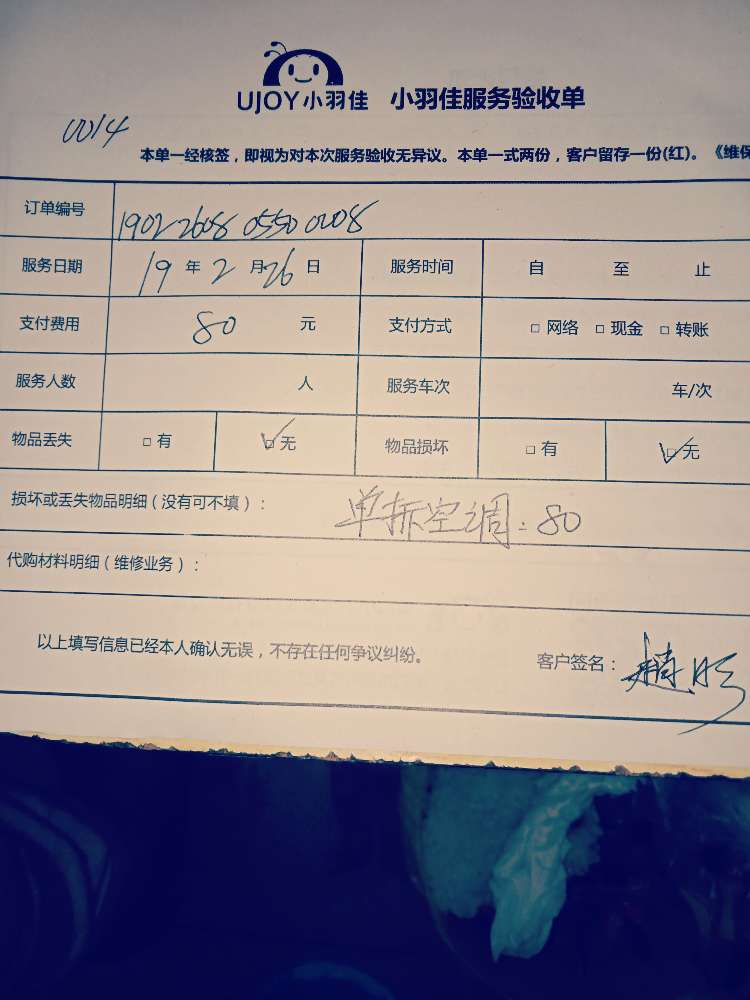 UJOY小羽佳 小羽佳服务验收单
0014
本单一经核签，即视为对本次服务验收无异议。本单一式两份，客户留存一份(红)。《维保
订单编号 19022608 0550 0208
服务日期 19 年 2 月 26 日 服务时间 自 至 止
支付费用 80 元 支付方式 □ 网络 □ 现金 □ 转账
服务人数 人 服务车次 车/次
物品丢失 □ 有 ☑ 无 物品损坏 □ 有 ☑ 无
损坏或丢失物品明细（没有可不填）： 单拆空调：80
代购材料明细（维修业务）：
以上填写信息已经本人确认无误，不存在任何争议纠纷。 客户签名：